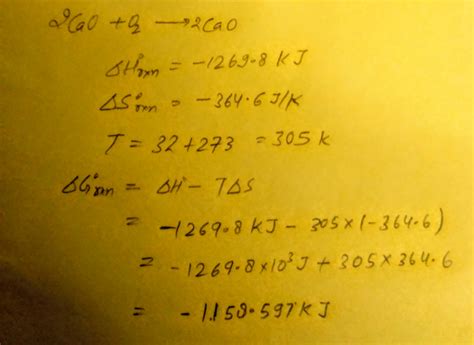 2CaO + O₂ → 2CaO
ΔH°rxn = -1269.8 KJ
ΔS°rxn = -364.6 J/K
T = 32 + 273 = 305 k
ΔG°rxn = ΔH - TΔS
= -1269.8 KJ - 305 × (-364.6)
= -1269.8 × 10³ J + 305 × 364.6
= -1158.597 KJ